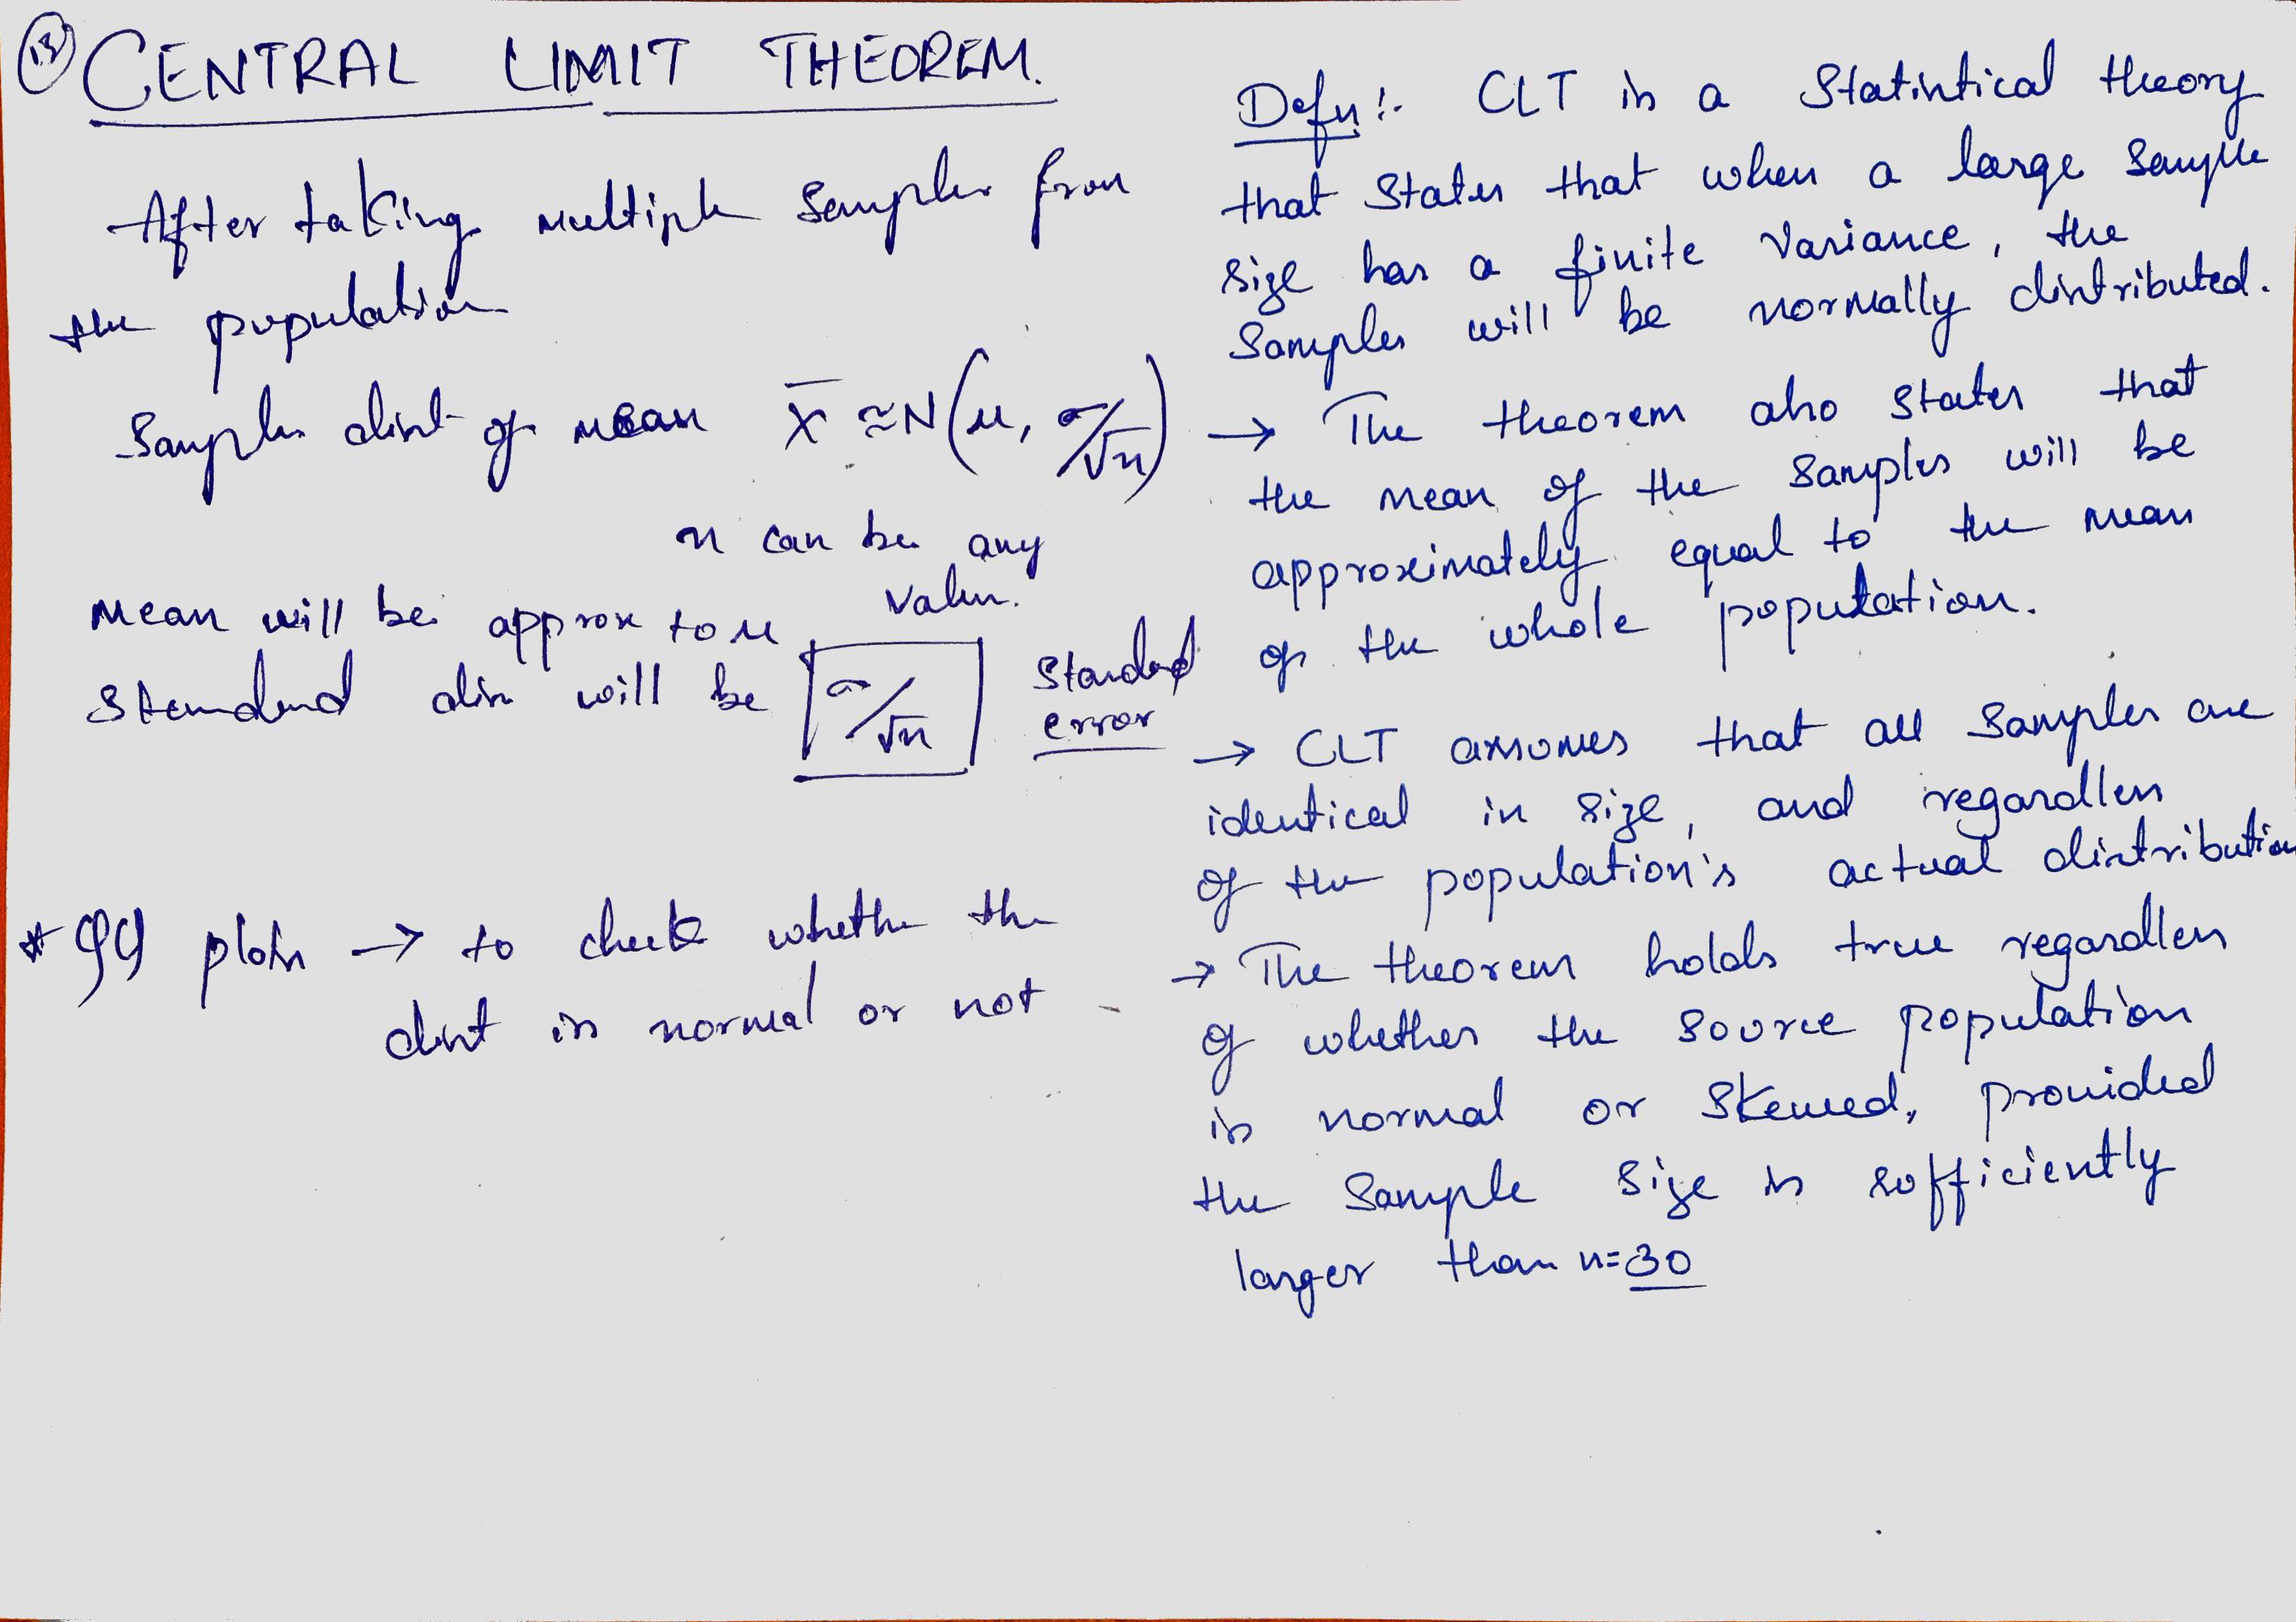 13 CENTRAL LIMIT THEOREM.
After taking multiple samples from
the population
Samples dist of mean X̄ ≃ N(μ, σ/√n)
n can be any
value.
Mean will be approx to μ
Standard dis will be σ/√n Standard
error
* QQ plots → to check whether the
dist is normal or not
Defn:- CLT is a Statistical theory
that States that when a large sample
size has a finite variance, the
samples will be normally distributed.
→ The theorem also states that
the mean of the samples will be
approximately equal to the mean
of the whole population.
→ CLT assumes that all samples are
identical in size, and regardless
of the population's actual distribution
→ The theorem holds true regardless
of whether the source population
is normal or skewed, provided
the sample size is sufficiently
larger than n=30